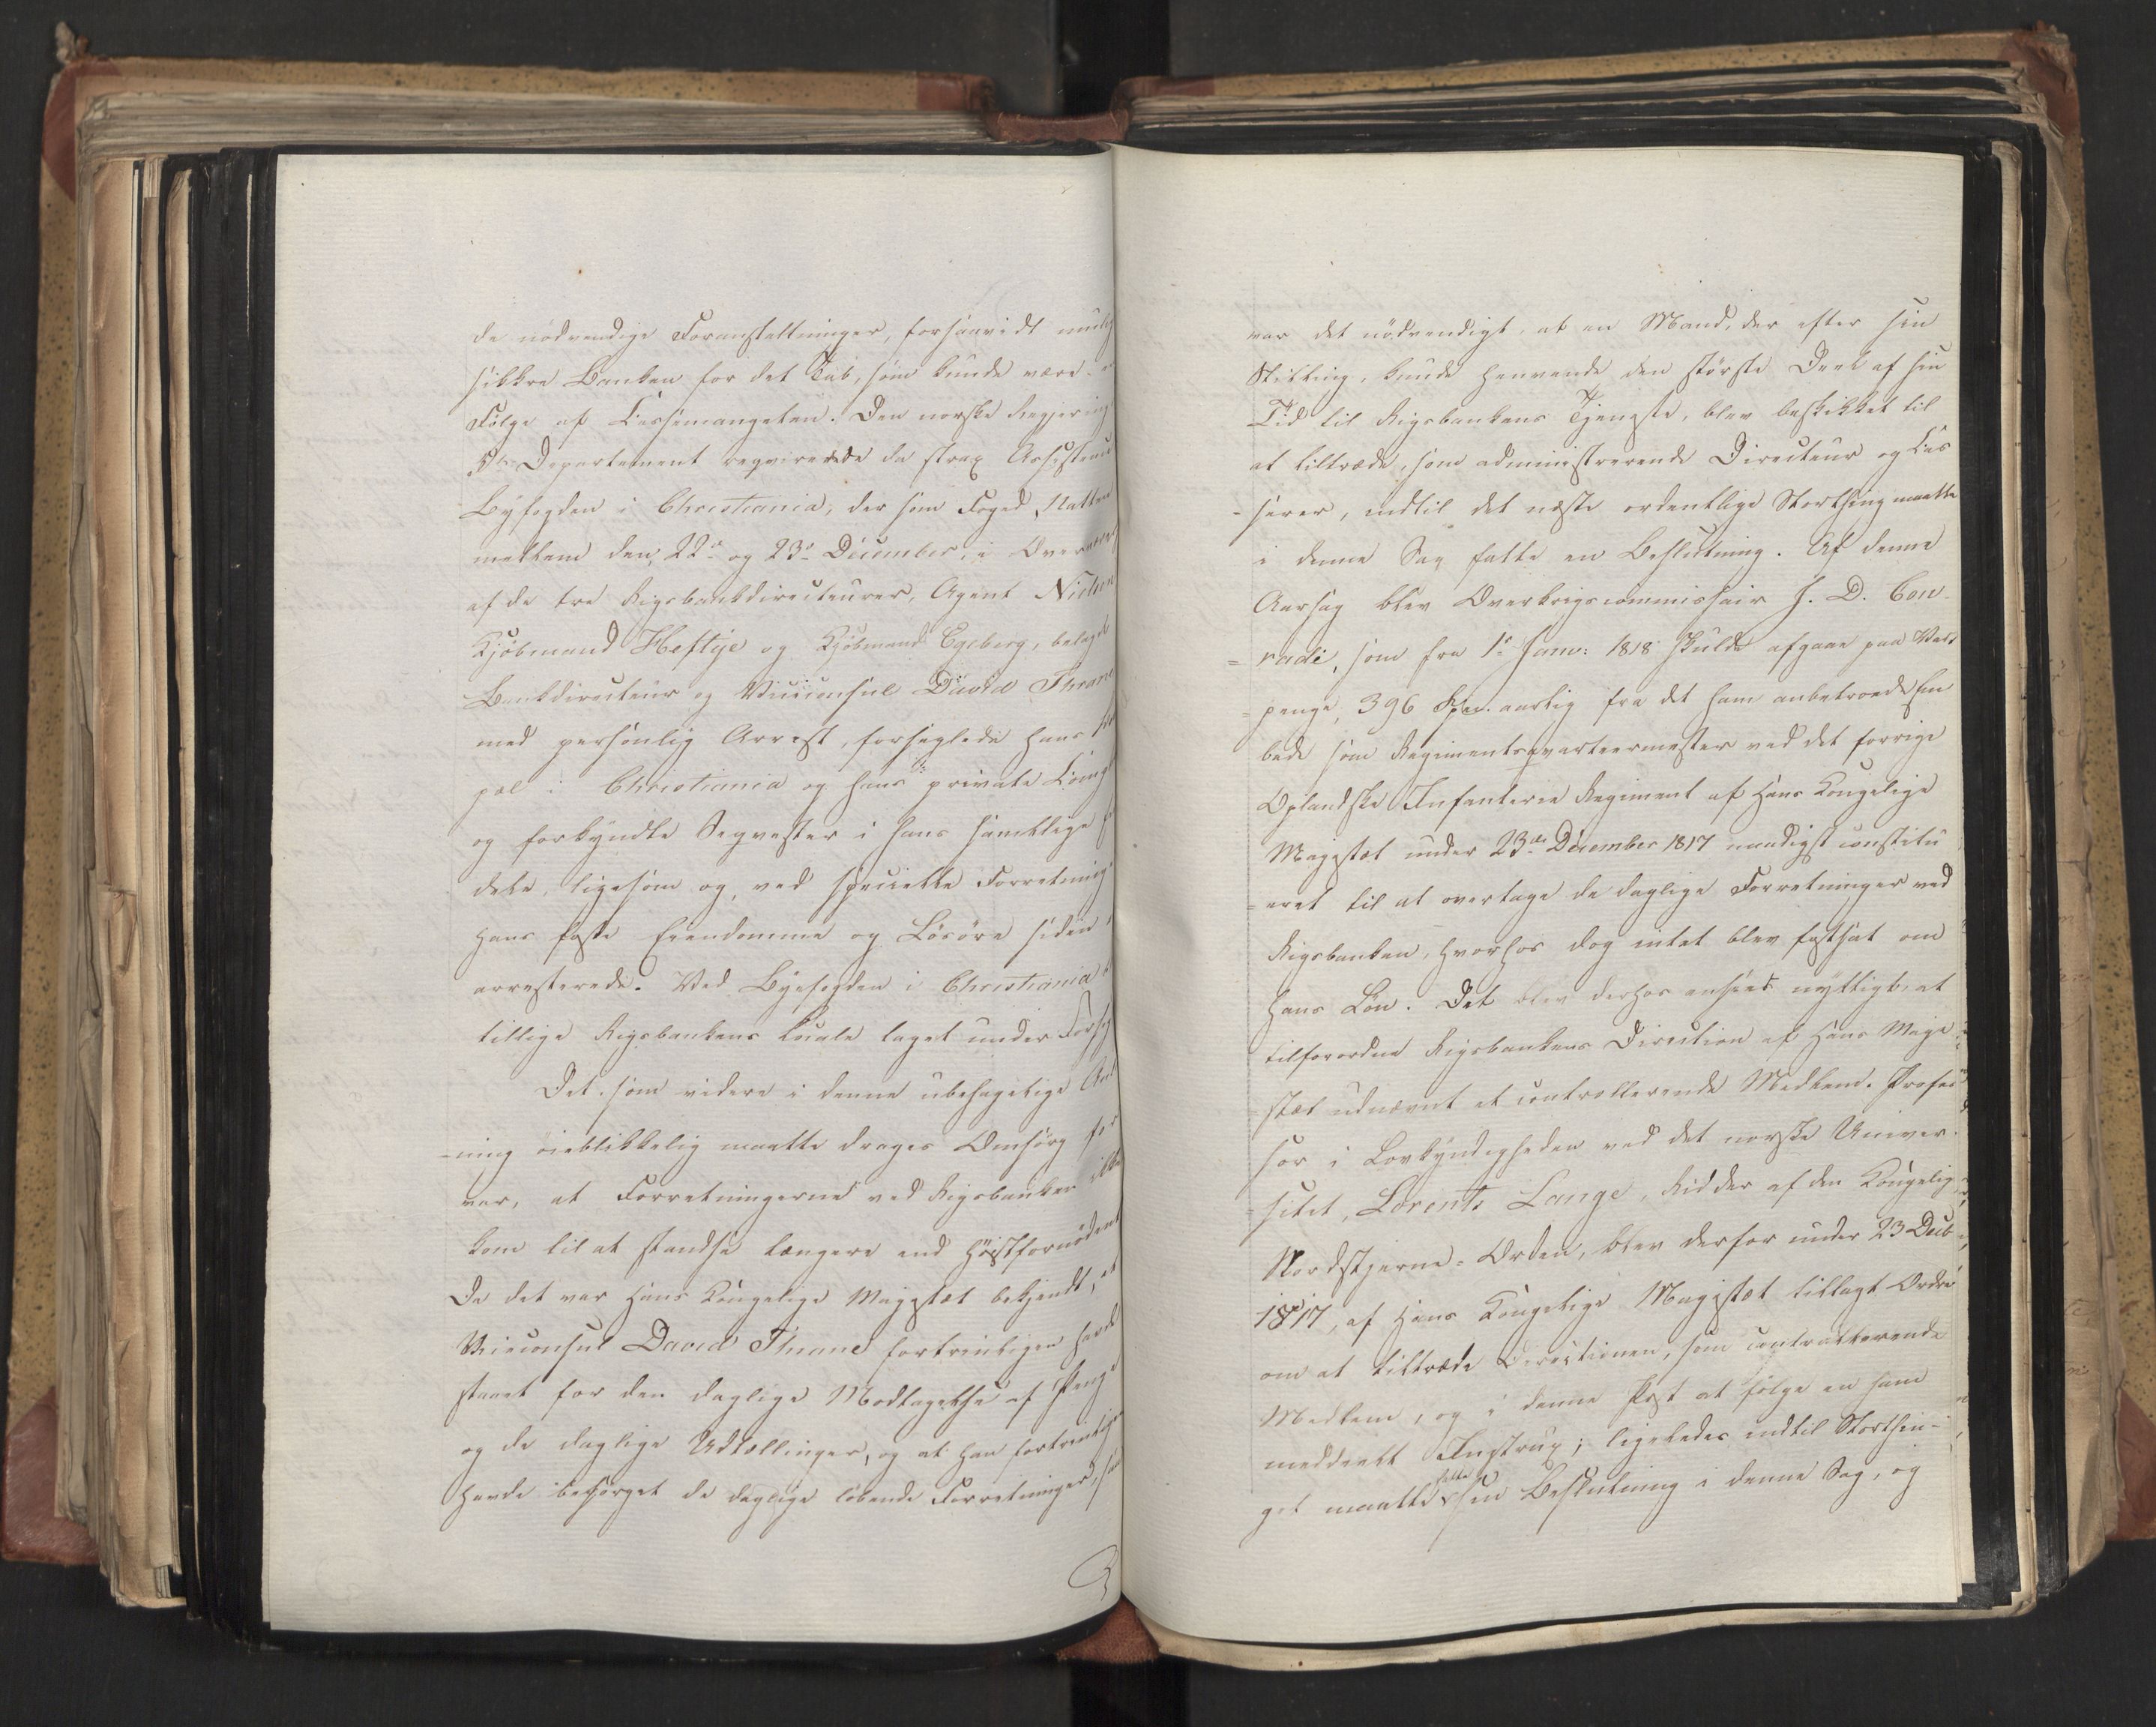 de nödvendige Foranstaltninger, forsaavidt mulig
sikkre Banken for det Tab, som kunde være en
Fölge af Cassemangelen. Den norske Regjerings
5te Departement reqvirerede da strax Assistence
Byfogden i Christiania, der som Foged, Natten
mellem den 22de og 23de December, i Overvær
af de tre Rigsbankdirecteurer, Agent Nielsen
Kjöbmand Heftye og Kjöbmand Egeberg, belagde
Bankdirecteur og Viceconsul David Thrane
med personlig Arrest, forseglede hans
i Christiania og hans private
og forkyndte Seqvester i hans samtlige
ligesom og, ved specielle Forretninger
hans faste Eiendomme og Lösöre siden
arresterede. Ved Byefogden i Christiania
tillige Rigsbankens Locale taget under
Det som videre i denne ubehagelige
-ning öieblikkelig maatte drages Omsorg for
var, at Forretningerne ved Rigsbanken ikke
kom til at standse længere end höistfornödent
Da det var Hans Kongelige Majestæt bekjendt, at
Viceconsul David Thrane fortrinligen havde
staaet for den daglige Modtagelse af Penge
og de daglige Udtællinger, og at han fortrinligen
havde besörget de daglige löbende Forretninger, saa
var det nödvendigt, at en Mand, der efter sin
Stilling, kunde henvende den störste Deel af sin
Tid til Rigsbankens Tjeneste, blev beskikket til
at tiltræde, som administrerende Directeur og Cas
-serer, indtil det næste ordentlige Storthing maatte
i denne Sag fatte en Beslutning. Af denne
Aarsag blev Overkrigscommissair J. D. Con-
=radi, som fra 1ste Janv: 1818 skulde afgaae paa Vart
=penge, 396 Spec. aarlig fra det ham anbetroede Em
bede som Regimentsqvarteermester ved det forrige
Oplandske Infanterie Regiment af Hans Kongelige
Majestæt under 23de December 1817 naadigst constitu
=eret til at overtage de daglige Forretninger ved
Rigsbanken, hvorhos dog intet blev fastsat om
hans Lön. Det blev derhos anseet nyttigt, at
tilforordne Rigsbankens Direction af Hans Maje
=stæt udnævnt et controllerende Medlem. Profes
sor i Lovkyndigheden ved det norske Univer-
=sitet, Lorents Lange, Ridder af den Kongelige
Nordstjerne=Orden, blev derfor under 23 Decb
1817, af Hans Kongelige Majestæt tillagt Ordre
om at tiltræde Directionen, som controllerende
Medlem, og i denne Post at fölge en ham
meddeelt Instrux; ligeledes indtil Storthin-
get maatte fatte sin Beslutning i denne Sag, og